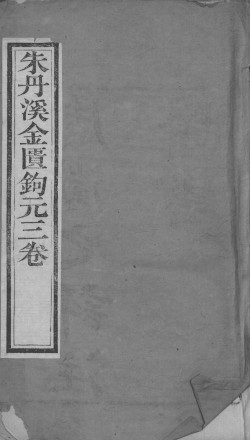 朱丹溪金匱鉤元三卷